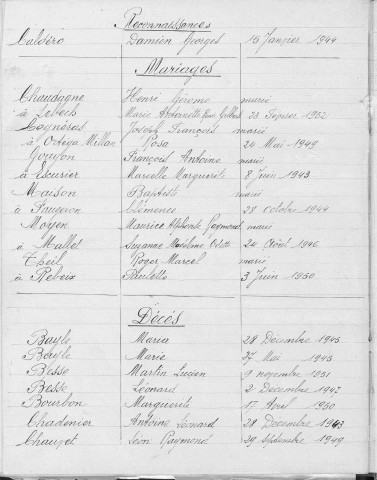 Reconnaissances
Caldéro Damien Georges 15 Janvier 1944
Mariages
Chaudagne Henri Gérome marié
à Marie Antoinette 23 Février 1952
Cognéras Joseph François marié
à Ortega Millan Rosa 24 Mai 1949
Goujon François Antoine marié
à Escurier Marcelle Marguerite 8 Juin 1943
Maison Baptiste marié
à Faugeron Clémence 28 octobre 1944
Moyen Maurice Alphonse Raymond marié
à Mallet Suzanne Madeleine Odette 24 Août 1946
Theil Roger Marcel marié
à Rebeix Paulette 3 Juin 1950
Décés
Bayle Maria 28 Décembre 1945
Bayle Marie 27 Mai 1945
Besse Martin Lucien 9 novembre 1951
Besse Léonard 2 Décembre 1947
Bourbon Marguerite 17 Avril 1950
Chadenier Antoine Léonard 28 Décembre 1943
Chauzet Léon Raymond 29 septembre 1949